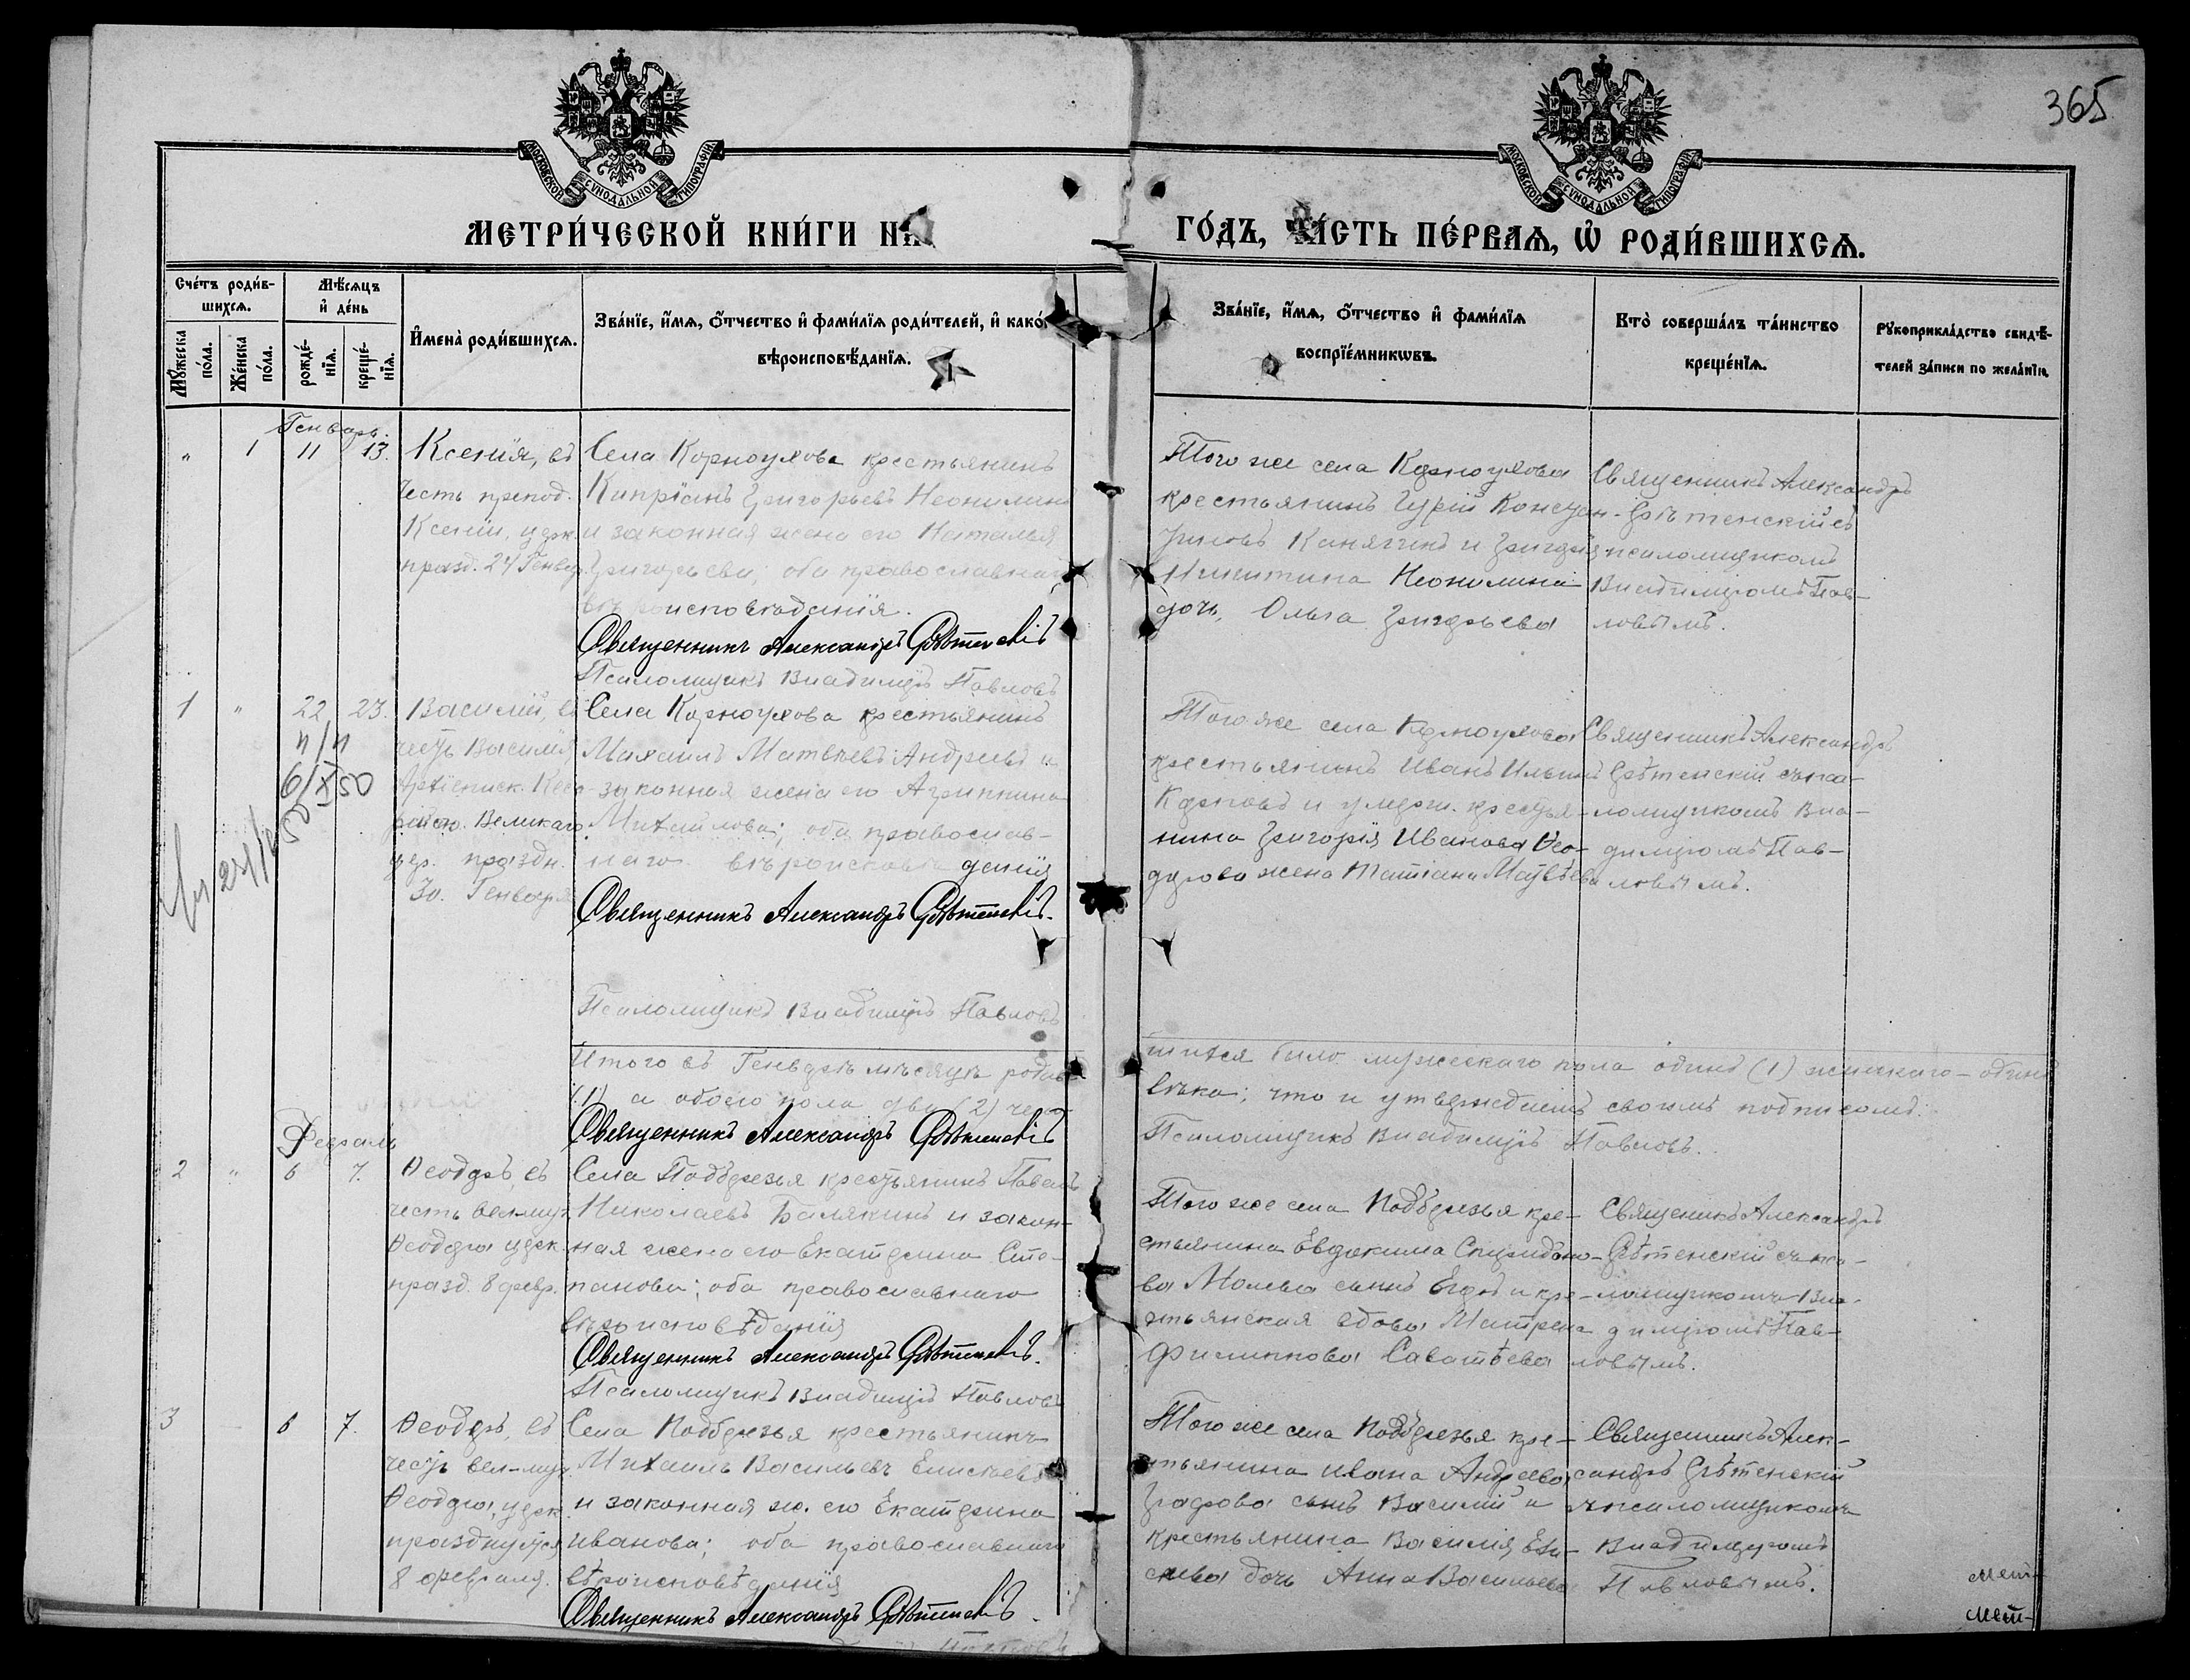 365
МОСКОВСКОЙ СѴНОДАЛЬНОЙ ТИПОГРАФІИ
МОСКОВСКОЙ СѴНОДАЛЬНОЙ ТИПОГРАФІИ
МЕТРИ́ЧЕСКОЙ КНИ́ГИ НА
ГО́ДЪ, ЧА́СТЬ ПЕ́РВАѦ, Ѡ҆ РОДИ́ВШИХСѦ.
Сче́тъ роди́в-
шихсѧ.
Мѣ́сѧцъ
и҆ де́нь
Мꙋ́жеска по́ла.
Же́нска по́ла.
рожде́-
нїѧ.
креще́-
нїѧ.
И҆мена̀ роди́вшихсѧ.
Зва́нїе, и҆́мѧ, ѻ҆́тчество и҆ фами́лїѧ роди́телей, и҆ како́
вѣроисповѣ́данїѧ.
Зва́нїе, и҆́мѧ, ѻ҆́тчество и҆ фами́лїѧ
воспрїе́мникѡвъ.
Кто̀ соверша́лъ та́инство
креще́нїѧ.
Рꙋкоприкла́дство свидѣ́-
телей за́писи по жела́нїю.
Генварь.
" 1 11 13.
Ксенія, въ
честь препод.
Ксеніи, церк.
празд. 24 Генвар.
Села Корноухова крестьянинъ
Кипріанъ Григорьевъ Неонилинъ
и законная жена его Наталья
Григорьева; оба православнаго
вѣроисповѣданія.
Священникъ Александръ Срѣтенскій
Псаломщикъ Владиміръ Павловъ
Того же села Корноухова
крестьянинъ Гурій Констан-
тиновъ Канягинъ и Григорія
Никитина Неонилина
дочь, Ольга Григорьева
Священникъ Александръ
Срѣтенскій съ
псаломщикомъ
Владиміромъ Пав-
ловымъ.
1 " 22 23.
6/X 50
Василій, въ
честь Василія
Архіеписк. Кеса-
рійск. Великаго
цер. праздн.
30. Генваря
Села Корноухова крестьянинъ
Михаилъ Матвѣевъ Андреевъ и
законная жена его Агриппина
Михайлова; оба православ-
наго вѣроисповѣданія
Священникъ Александръ Срѣтенскій.
Псаломщикъ Владиміръ Павловъ
Того же села Корноухова
крестьянинъ Иванъ Ильинъ
Карповъ и умерш. крестья-
нина Григорія Иванова Ѳео-
дорова жена Татіана Матвѣева
Священникъ Александръ
Срѣтенскій съ пса-
ломщикомъ Вла-
диміромъ Пав-
ловымъ.
Итого въ Генварѣ мѣсяцѣ родив-
шихся было мужескаго пола одинъ (1) женскаго - одинъ
(1) а обоего пола два (2) чело-
вѣка; что и утверждаемъ своимъ подписомъ.
Священникъ Александръ Срѣтенскій
Псаломщикъ Владиміръ Павловъ.
Февраль
2 " 6 7.
Ѳеодоръ, въ
честь вел-муч.
Ѳеодора церк.
празд. 8 февр.
Села Подберезья крестьянинъ Павелъ
Николаевъ Балякинъ и закон-
ная жена его Екатерина Сте-
панова; оба православнаго
вѣроисповѣданія
Священникъ Александръ Срѣтенскій.
Псаломщикъ Владиміръ Павловъ
Того же села Подберезья кре-
стьянина Евдокима Спиридоно-
ва Молева сынъ Егоръ и кре-
стьянская вдова Матрена
Филиппова Саватѣева
Священникъ Александръ
Срѣтенскій съ пса-
ломщикомъ Вла-
диміромъ Пав-
ловымъ.
3 6 7.
Ѳеодоръ, въ
честь вел-муч.
Ѳеодора, церк.
празднуется
8 февраля.
Села Подберезья крестьянинъ
Михаилъ Васильевъ Елисѣевъ
и законная ж. его Екатерина
Иванова; оба православнаго
вѣроисповѣданія
Священникъ Александръ Срѣтенскій.
Того же села Подберезья кре-
стьянина Ивана Андреева
Графова сынъ Василій и
крестьянина Василія Ели-
сѣева дочь Анна Васильева
Священникъ Алек-
сандръ Срѣтенскій
съ псаломщикомъ
Владиміромъ
Павловымъ.
мет-
мет-